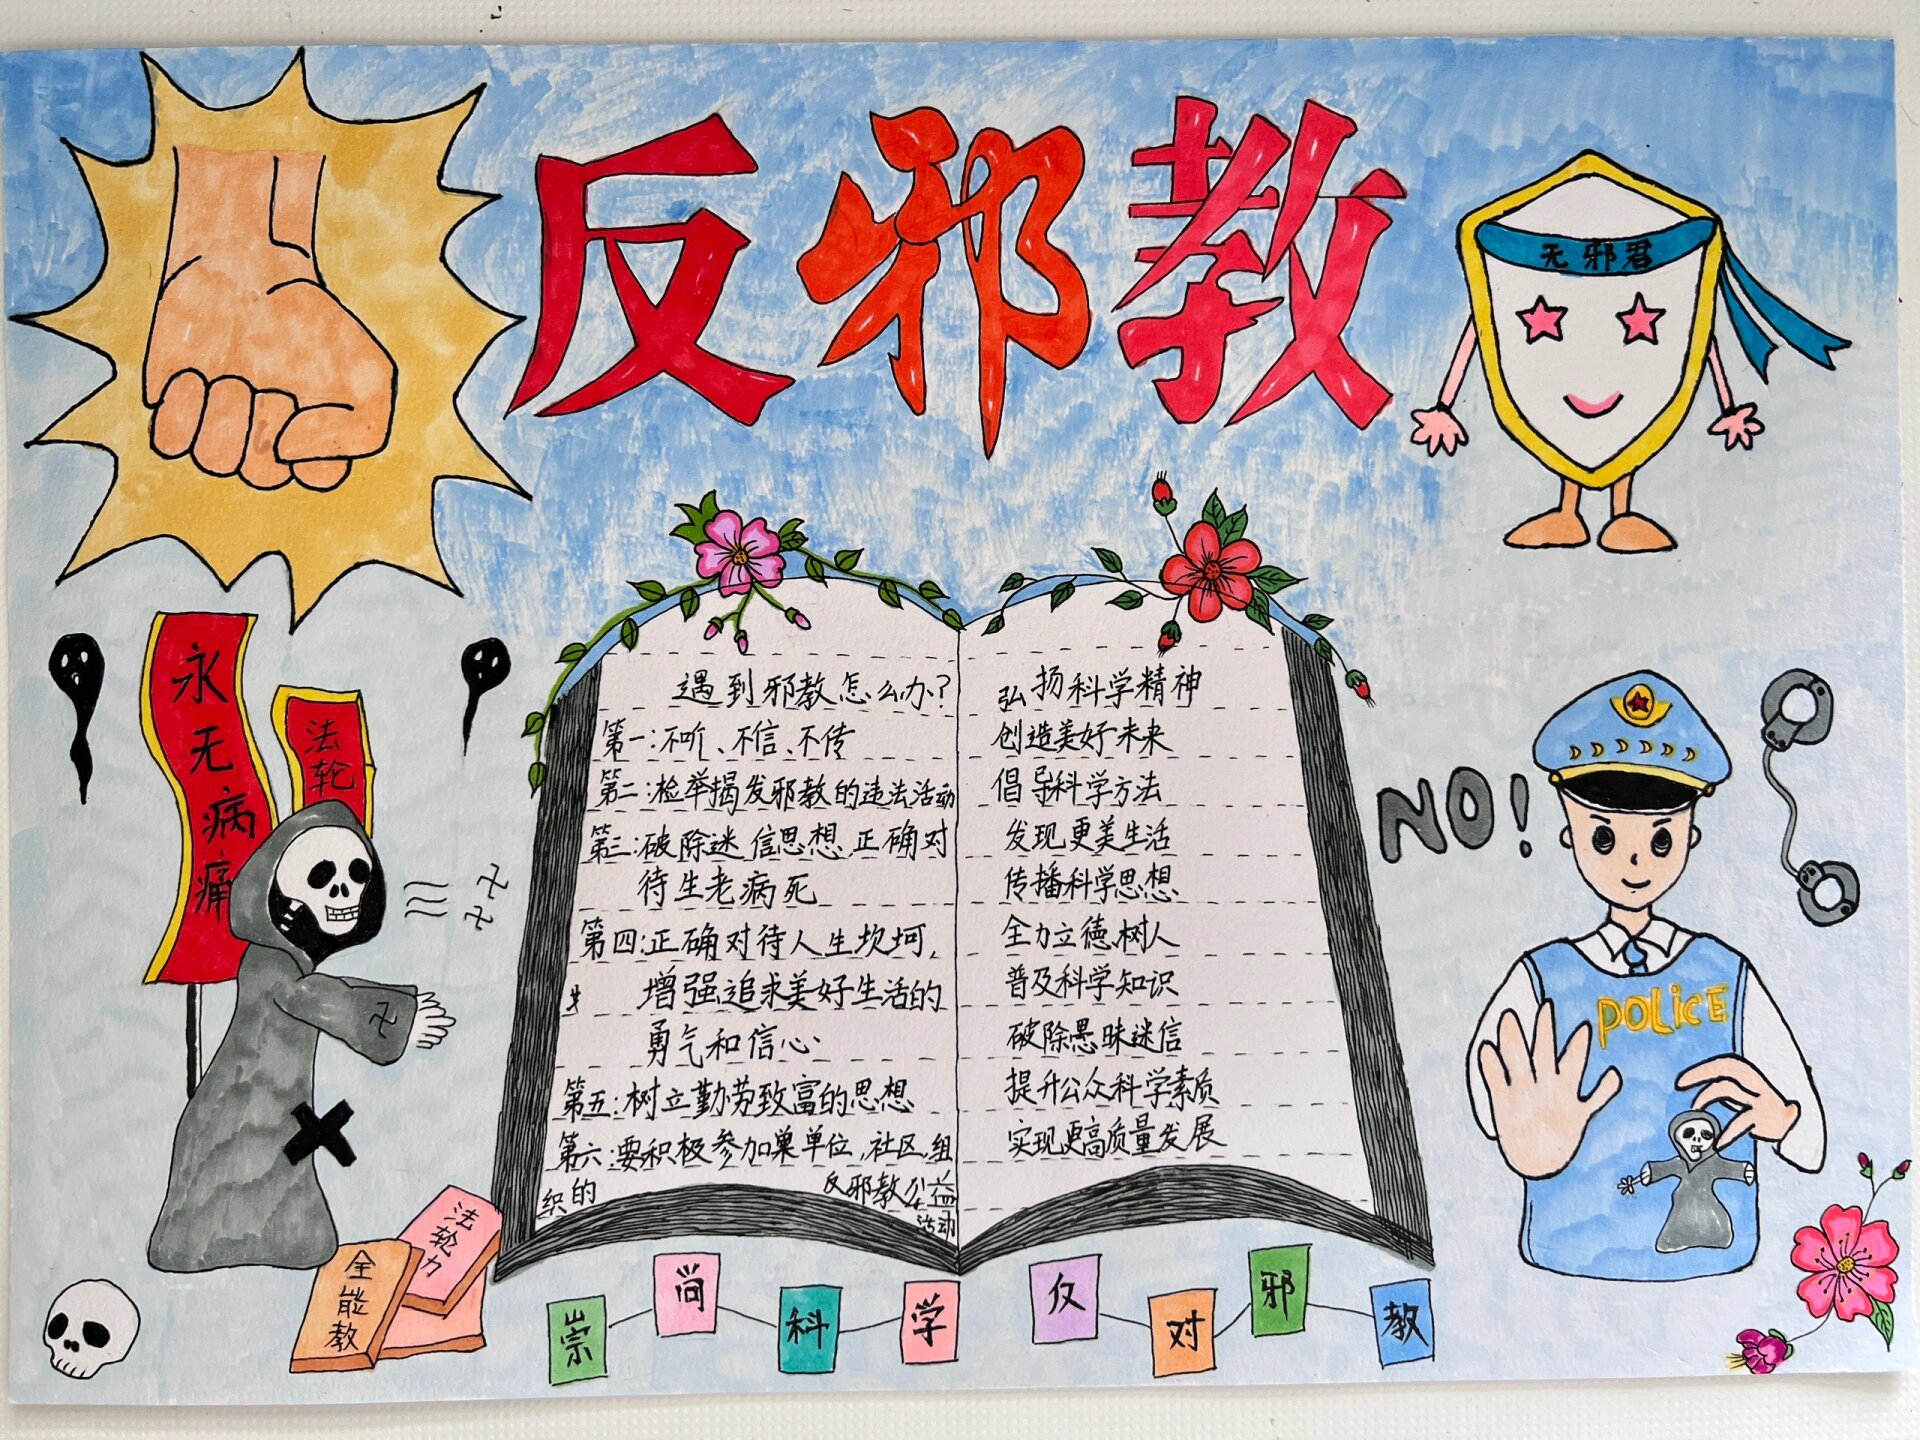 反邪教
无邪君
永无病痛
法轮
卍
卍
卍
遇到邪教怎么办?
第一:不听、不信、不传
第二:检举揭发邪教的违法活动
第三:破除迷信思想,正确对
待生老病死
第四:正确对待人生坎坷,
增强追求美好生活的
勇气和信心.
第五:树立勤劳致富的思想
第六:要积极参加单位,社区,组
织的
反邪教公益
活动
弘扬科学精神
创造美好未来
倡导科学方法
发现更美生活
传播科学思想
全力立德树人
普及科学知识
破除愚昧迷信
提升公众科学素质
实现更高质量发展
NO!
POLICE
法轮力
全能教
崇尚科学
仅对邪教